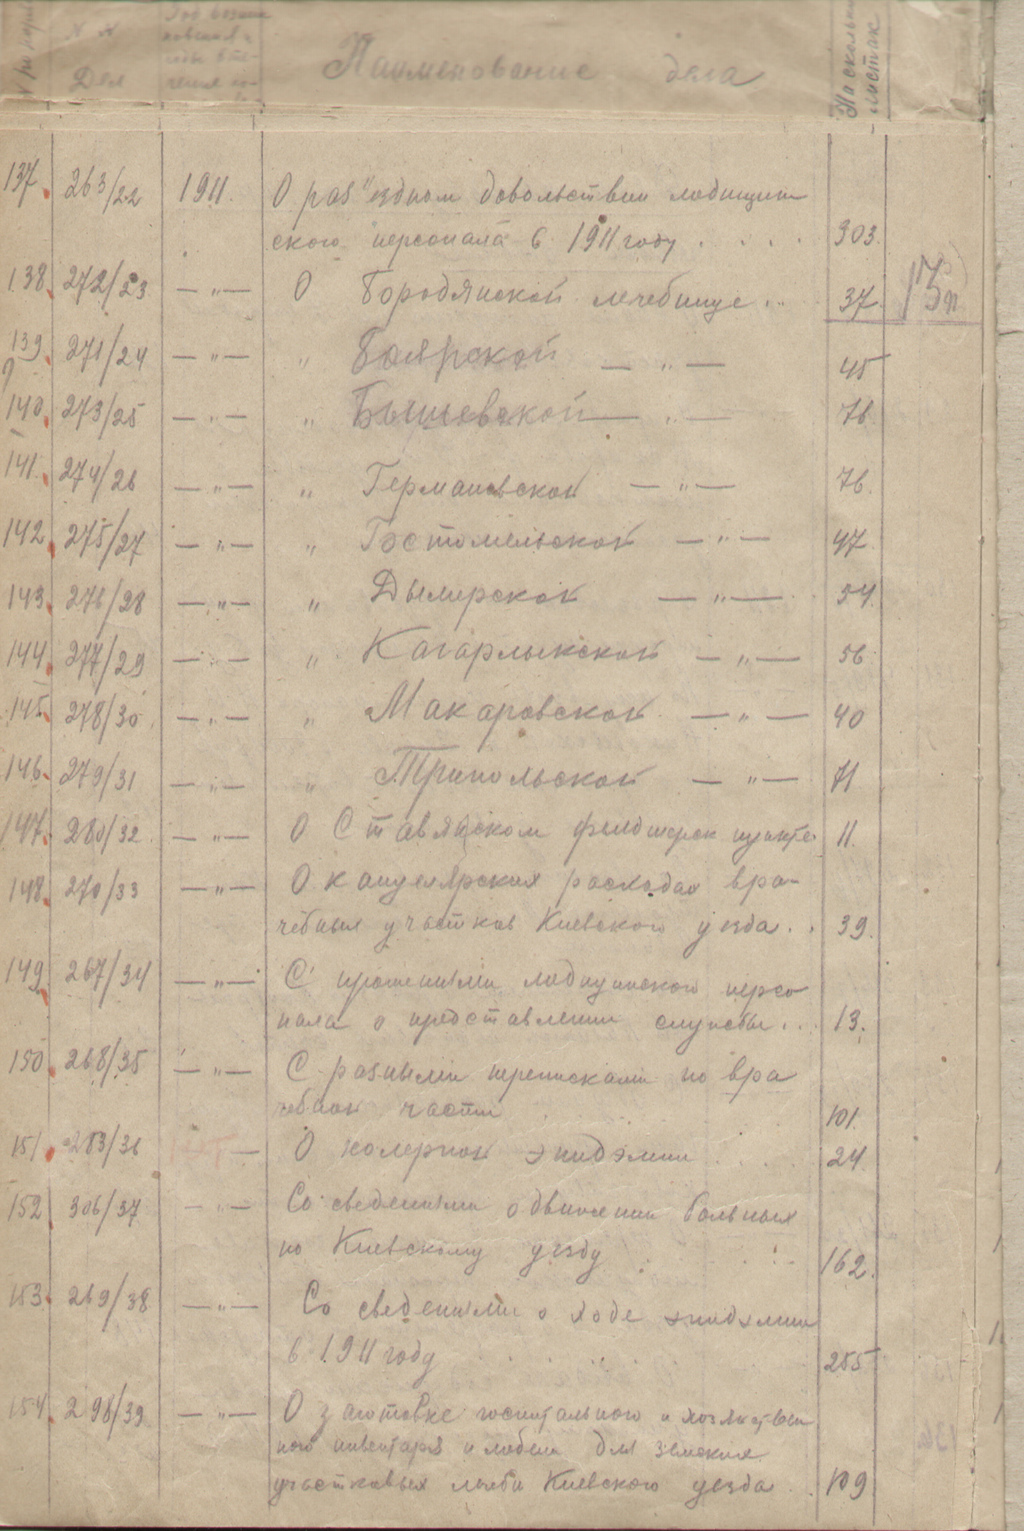 № № Дел
Наименование дела
На скольких листах
137. 263/22 1911. О раз"ездном довольствии медицин
ского персонала в 1911 году . . . . 303.
138. 272/23 — " — О Бородянской лечебнице . . 37. 13п
139 271/24 — " — " Боярской — " — 45
140. 273/25 — " — " Бышевской — " — 76.
141. 274/26 — " — " Германовской — " — 76.
142. 275/27 — " — " Гостомельской — " — 47.
143. 276/28 — " — " Дымерской — " — 54.
144. 277/29 — " — " Кагарлыкской — " — 56
145. 278/30 — " — " Макаровской — " — 40
146. 279/31 — " — " Трипольской — " — 71
147. 280/32 — " — О Ставянском фельдшерск пункте 11.
148. 270/33 — " — О канцелярских расходах вра-
чебных участков Киевского уезда . . 39.
149. 267/34 — " — С прошениями медицинского персо
нала о предоставлении службы . . . 13.
150. 268/35 — " — С разными переписками по вра
чебной части 101.
151. 283/36 — О холерной эпидэмии . . . 24
152. 306/37 — " — Со сведениями о движении больных
по Киевскому уезду . . . 162.
153. 269/38 — " — Со сведениями о ходе эпидэмии
в 1911 году . . . . 255
154. 298/39 — " — О заготовке госпитального и хозяйствен
ного инвентаря и мебели для земских
участковых лечебн Киевского уезда . 109